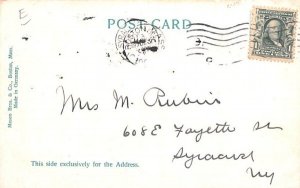 E
POST CARD
Mason Bros. & Co., Boston, Mass.
Made in Germany.
Mrs M. Rubin
608 E Fayette St
Syracuse
NY
This side exclusively for the Address.